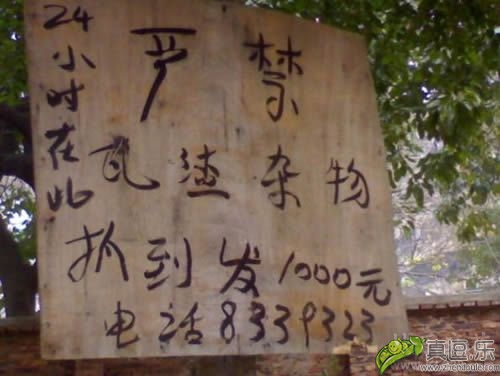 24小时在此
严禁
瓦渣杂物
抓到发1000元
电话8339323
真逗乐
www.zhendoule.com